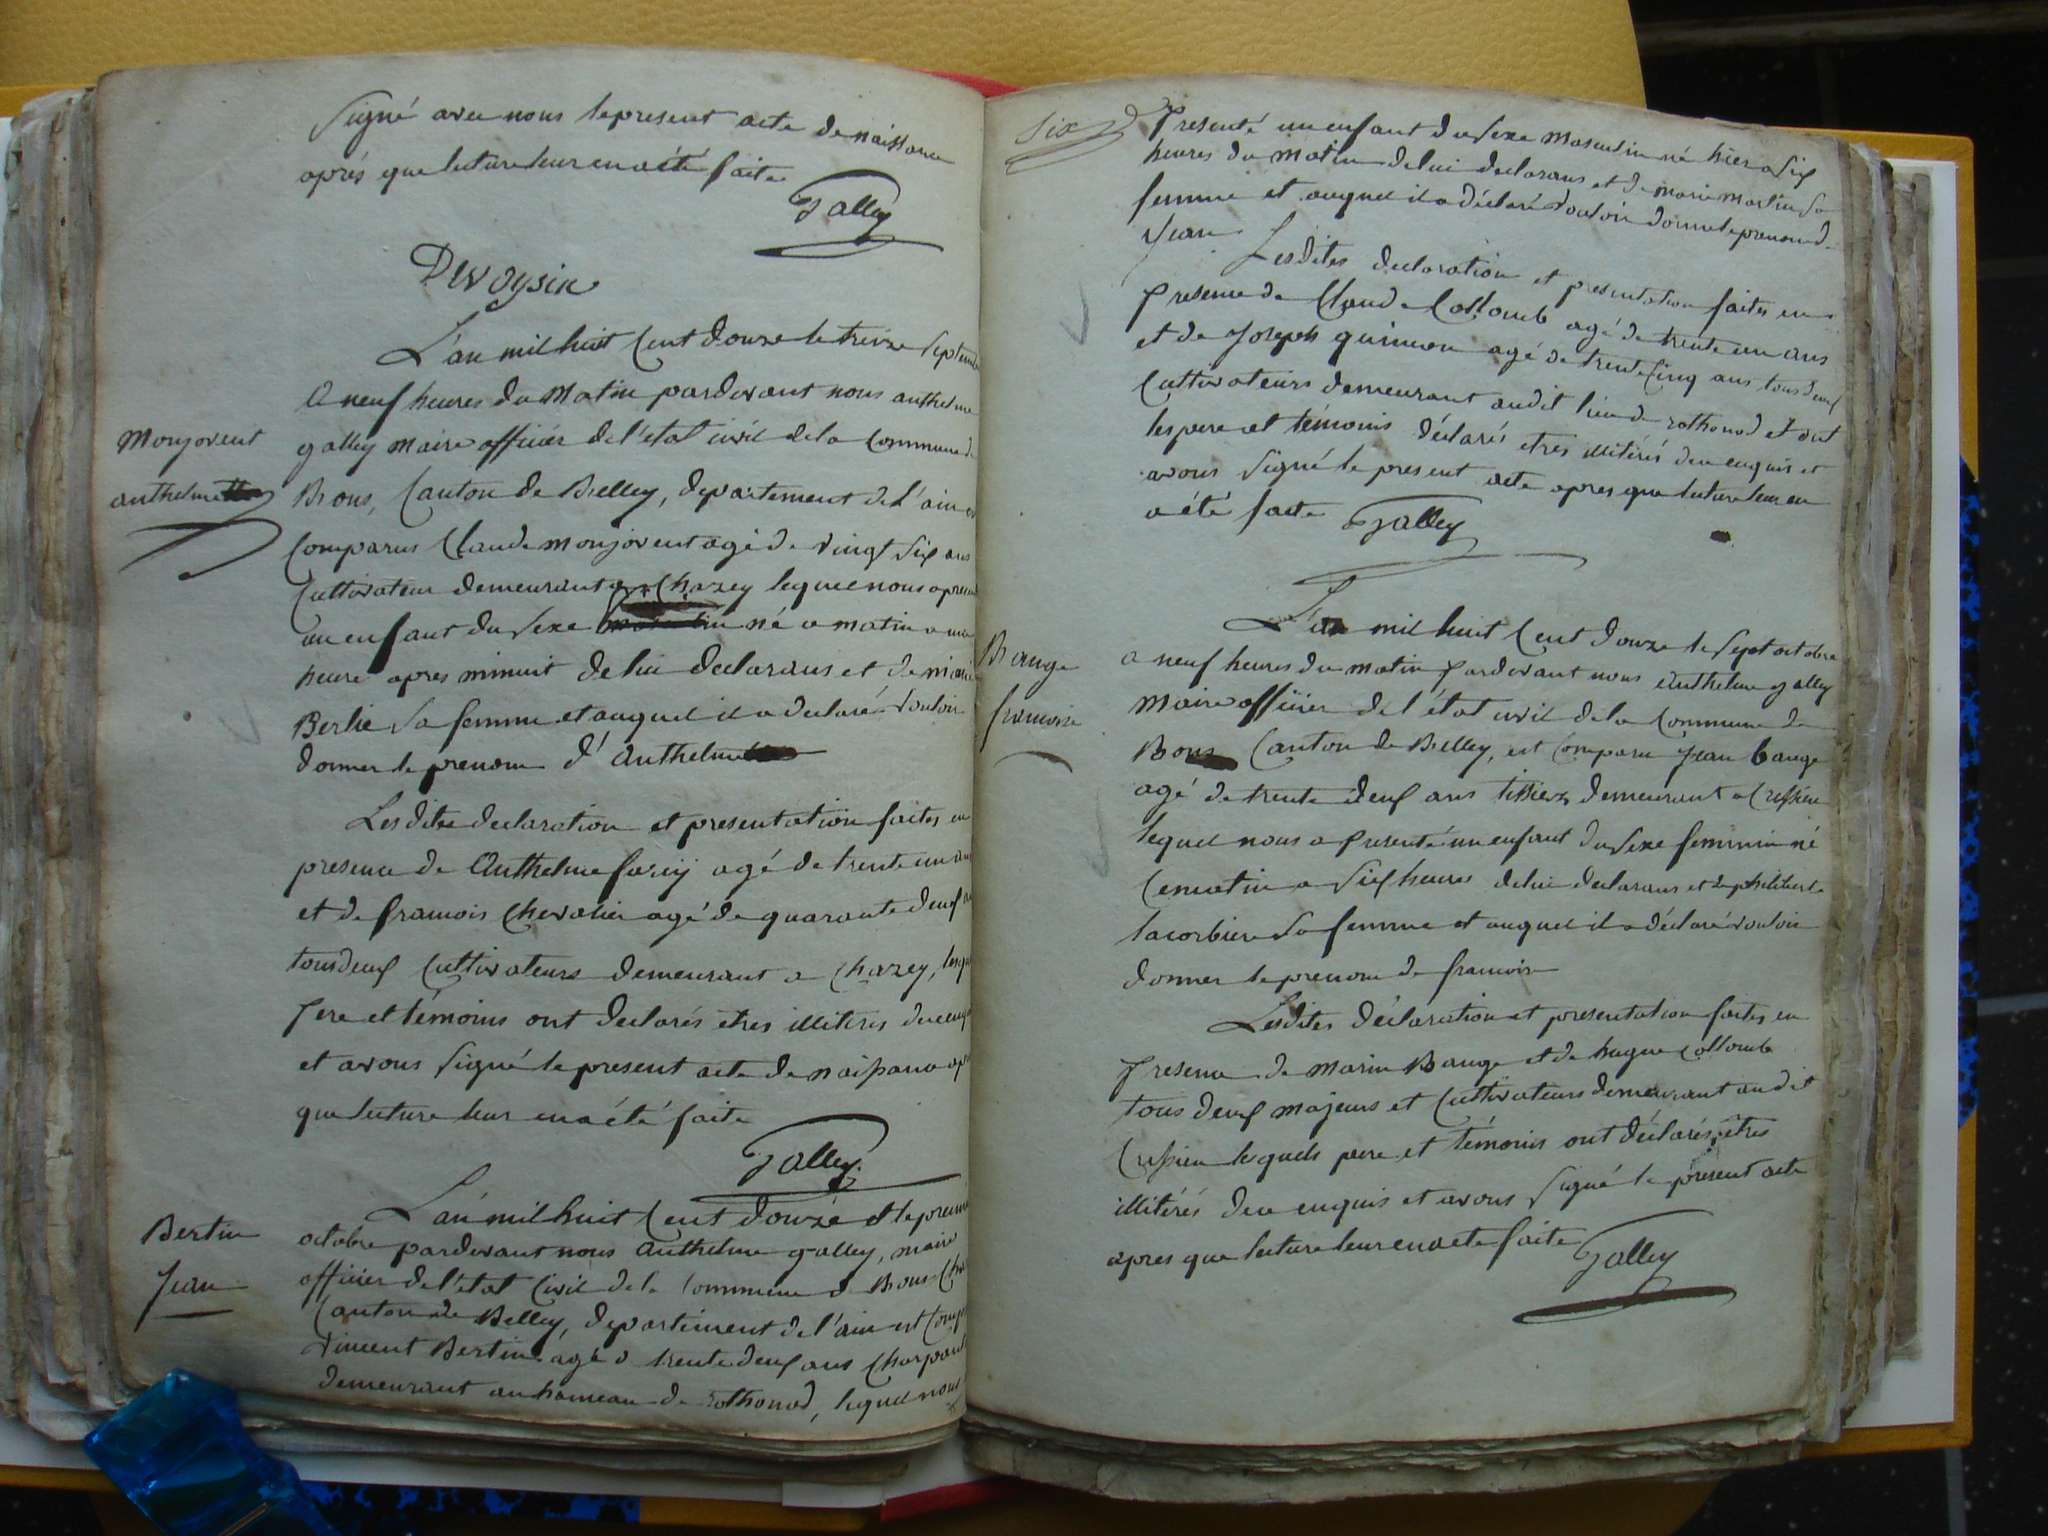 Signé avec nous le present acte de naissance
après que lecture leur en a été faite
Galley
Devoysin
L'an mil huit Cent douze le treize Septemb
A neuf heures du Matin pardevant nous anthelme
Monjovent
galley Maire officier de l'etat civil de la Commune de
anthelme
Brons, Canton de Belley, departement de L'ain
Comparus Claude monjovent agé de vingt Six ans
Cultivateur demeurant a Chazey lequel nous a presen
un enfant du Sexe né ce matin a une
heure apres minuit de lui declarans et de marie
Berlie Sa femme et auquel il a declaré vouloir
donner le prenom d' Anthelme
Les dites declaration et presentation faites en
presence de Anthelme farcy agé de trente un an
et de francois Chevalier agé de quarante deux an
tous deux Cultivateurs demeurant a Chazey, lesq
Pere et témoins ont declarés etres illiteres de ce enq
et avons Signé le present acte de naissance ap
que lecture leur en a été faite
Galley
Bertin
Jean
L'an mil huit Cent douze et le premie
octobre pardevant nous Anthelme galley, maire
officier de l'état Civil de la Commune d Brons
Canton de Belley, departement de l'ain est Comp
Vincent Bertin agé d trente deux ans Charpant
demeurant au hameau de rothonod, lequel nous
Six
Presenté un enfant du Sexe Masculin né hier a Six
heures du Matin de lui declarans et de marie martin Sa
femme et auquel il a déclaré vouloir donne le prenom de
Jean
Les dites declaration et presentation faites en
presence de Claude Collomb agé de trente un ans
et de Joseph quinson agé de trente Cinq ans tous deux
Cultivateurs demeurant au dit lieu de rothonod et ont
les pere et témoins déclarés etres illitérés de ce enquis et
avons Signé le present acte apres que lecture leur en
a été faite
Galley
Bange
francoise
L'an mil huit Cent douze le Sept octobre
a neuf heures du matin Pardevant nous Anthelme galley
Maire officier de l'état civil de la Commune de
Brons Canton de Belley, est Comparu Jean bange
agé de trente deux ans tissier demeurant a Cressieu
lequel nous a Presenté un enfant du Sexe feminin né
Ce matin a Six heures de lui declarans et de philiberte
lacorbiere Sa femme et auquel il a déclaré vouloir
donner le prenom de francoise
Lesdites déclaration et presentation faites en
Presence de Marin Bange et de hugue Collomb
tous deux majeurs et Cultivateurs demeurant audit
Cressieu lesquels pere et témoins ont déclarés etres
illitérés de ce enquis et avons Signé le présent acte
apres que lecture leur en a ete faite
Galley